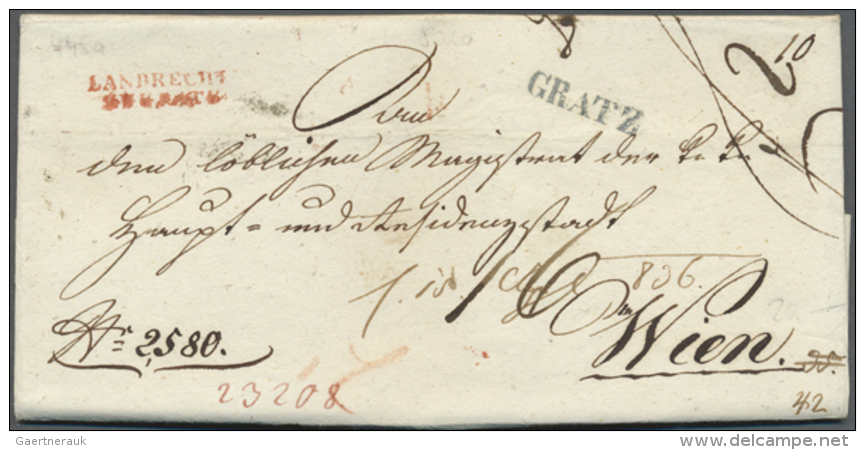 10
LANDRECHT
GRATZ
den löblichen Magistrat der k. k.
Haupt- und Residenzstadt
836.
Wien.
Nr 2,580.
23208
42
Gaertnerauk
www.delcampe.net